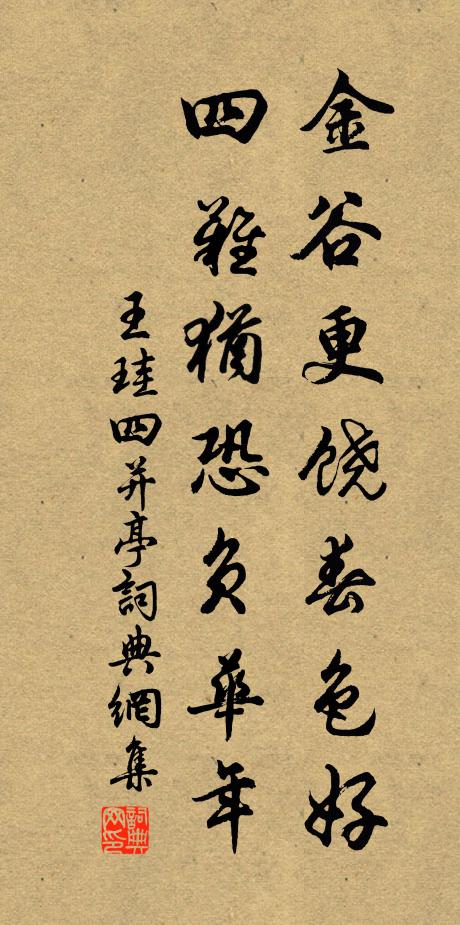 金谷更饶春色好
四难犹恐负华年
王珪四并亭詞典網集
詞典网印